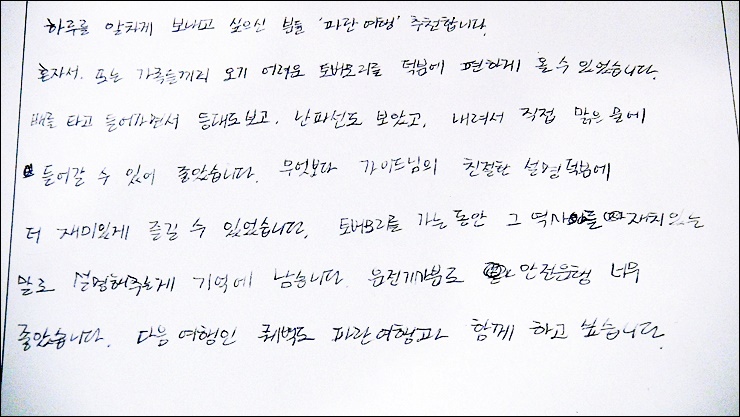 하루를 알차게 보내고 싶으신 분들 '파란여행' 추천합니다.
혼자서. 또는 가족들끼리 오기 어려운 토버모리를 덕분에 편하게 올 수 있었습니다.
배를 타고 들어가면서 등대도 보고, 난파선도 보았고, 내려서 직접 맑은 물에
들어갈 수 있어 좋았습니다. 무엇보다 가이드님의 친절한 설명 덕분에
더 재미있게 즐길 수 있었습니다. 토버모리를 가는 동안 그 역사를 재치있는
말로 설명해주신게 기억에 남습니다. 운전기사분도 안전운행 너무
좋았습니다. 다음 여행인 퀘벡도 파란여행과 함께 하고 싶습니다.